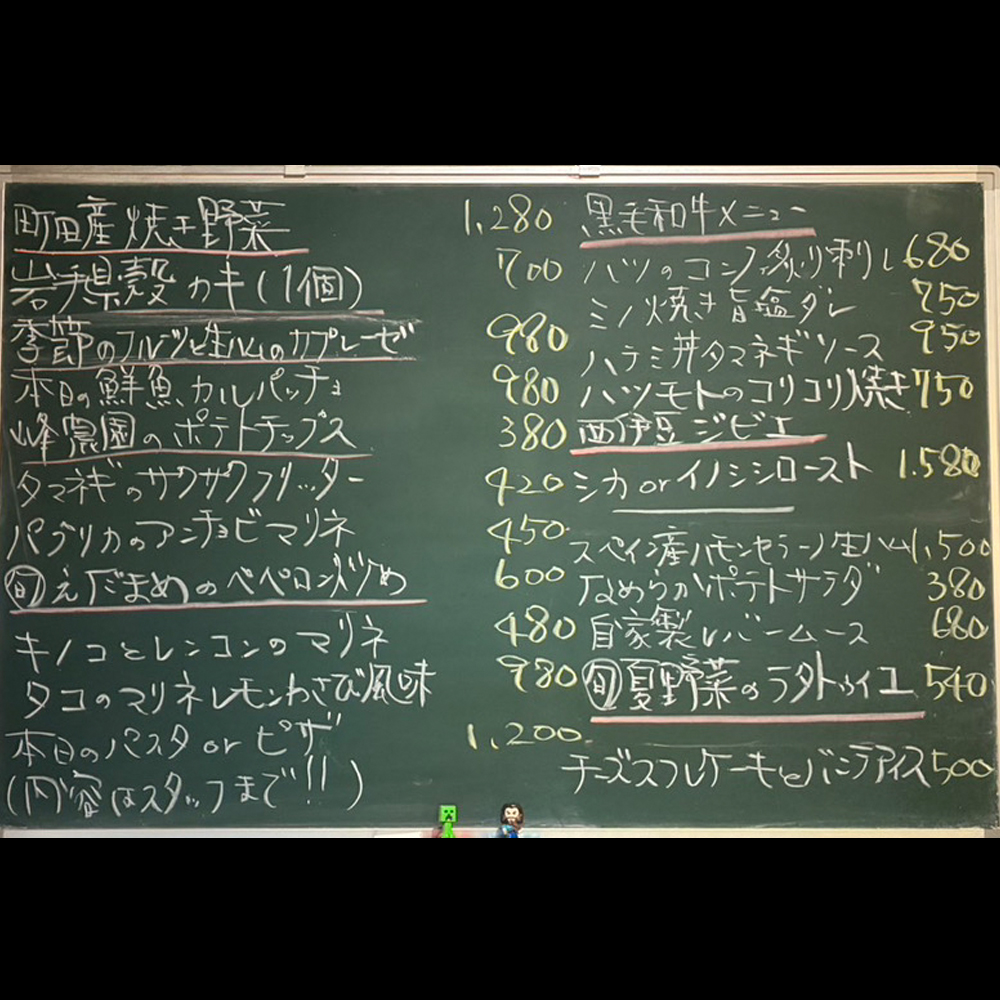 町田産焼き野菜 1,280
岩手県殻カキ(1個) 700
季節のフルーツと生ハムのカプレーゼ 980
本日の鮮魚カルパッチョ 980
峰農園のポテトチップス 380
タマネギのサクサクフリッター 420
パプリカのアンチョビマリネ 450
旬えだまめのペペロン炒め 600
キノコとレンコンのマリネ 480
タコのマリネレモンわさび風味 980
本日のパスタorピザ 1,200
(内容はスタッフまで!!)
黒毛和牛メニュー
ハツのコンフィ炙り刺し 680
ミノ焼き旨塩ダレ 750
ハラミ丼タマネギソース 950
ハツモトのコリコリ焼き 750
西伊豆ジビエ
シカorイノシシロースト 1.580
スペイン産ハモンセラーノ生ハム 1,500
なめらかポテトサラダ 380
自家製レバームース 680
旬夏野菜のラタトゥイユ 540
チーズスフレケーキとバニラアイス 500